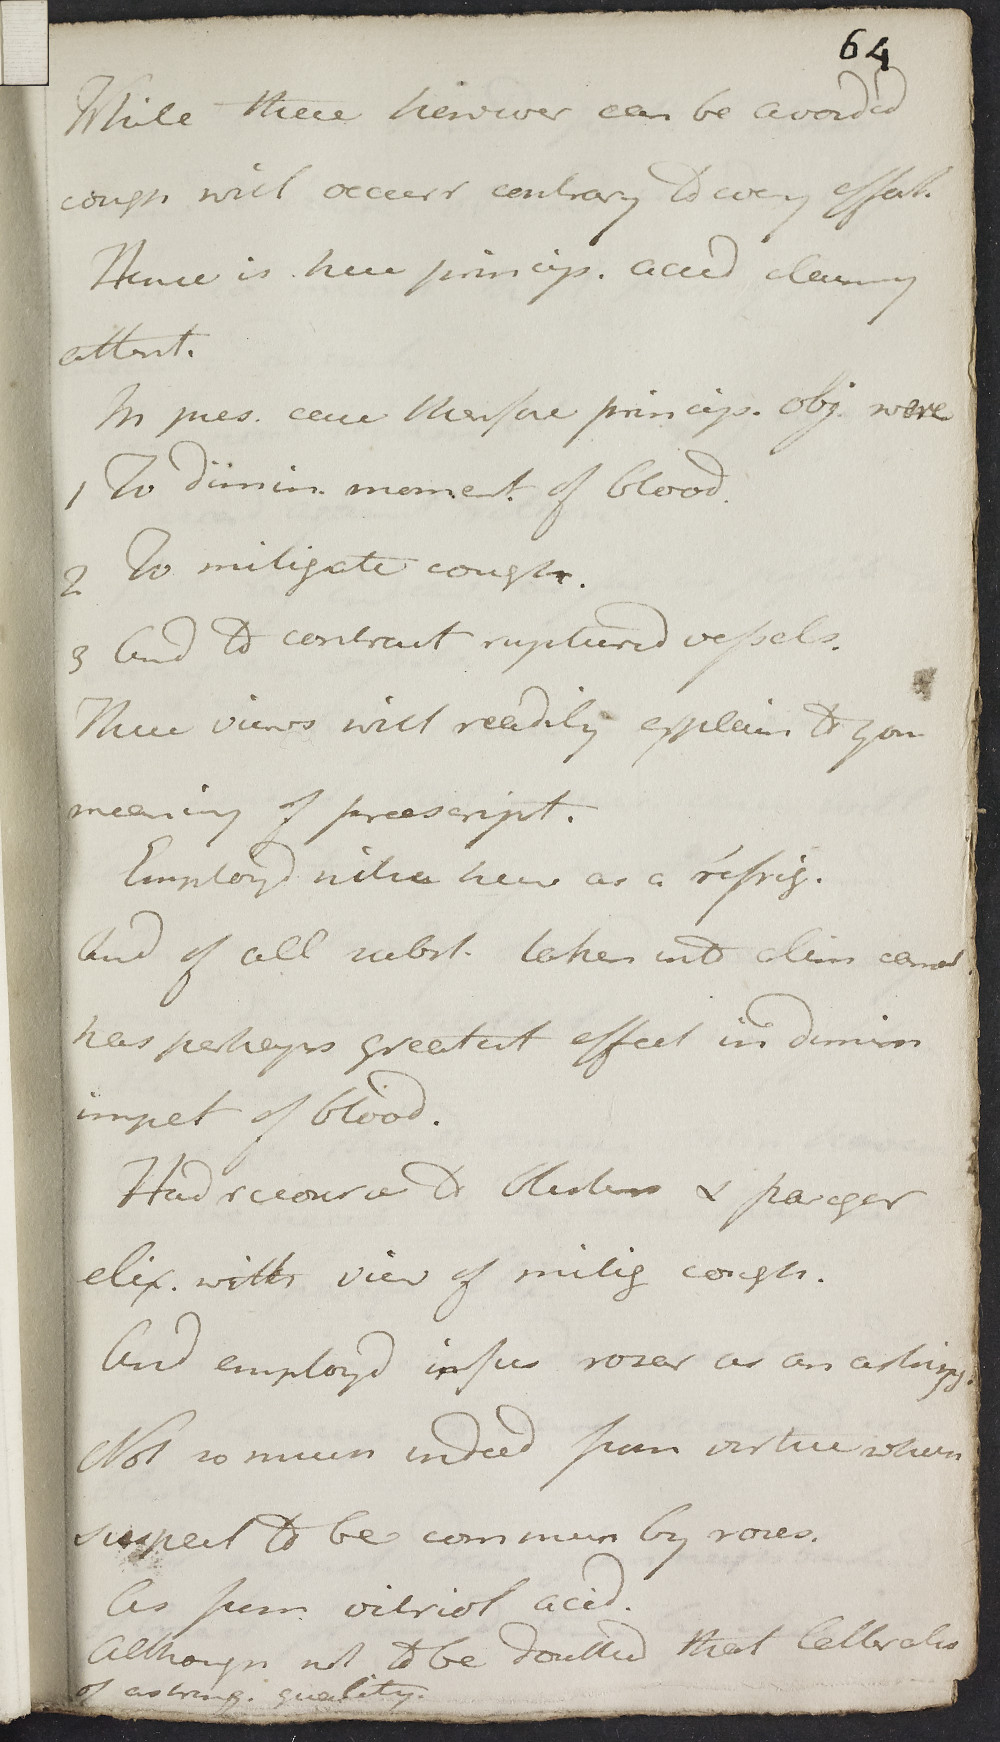 64
While these however can be avoided
cough will occurr contrary to every effort.
Hence is here princip. aced
attent.
In pres. case therfore princip. obj. were
1 To dimin. moment. of blood.
2 To mitigate cough.
3 And to contract ruptured vessels.
These views will readily explain to you
meaning of preescript.
Employd nitre here as a refrig.
And of all subst. taken into alim canal
has perhaps greatest effect in dimin
impet of blood.
Had recourse to & pareger
elix. with view of mitig cough.
And employd infus rosar as an astring.
Not so much indeed from virtue whern
suspect to be commun by roses.
As from vitriol acid.
Although not to be doubted that latter also
of astring. quality.